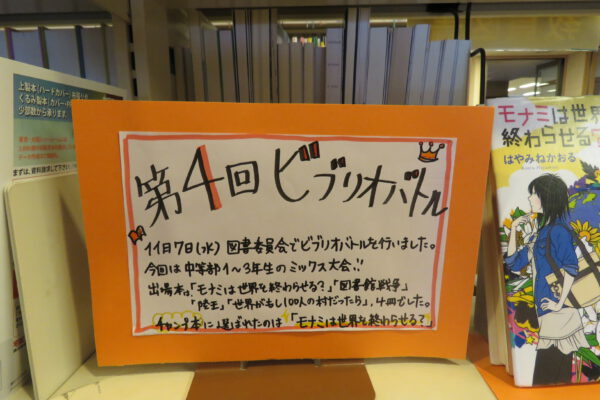 上製本(ハードカバー)
少部数から承ります。
第4回ビブリオバトル
11月7日(水) 図書委員会でビブリオバトルを行いました。
今回は中等部1〜3年生のミックス大会!!
出場本は、「モナミは世界を終わらせる?」「図書館戦争」
「陸王」「世界がもし100人の村だったら」、4冊でした。
チャンプ本に選ばれたのは「モナミは世界を終わらせる?」
モナミは世界
終わらせる?
はやみねかおる